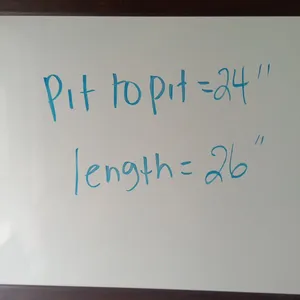 Pit to pit = 24"
length = 26"